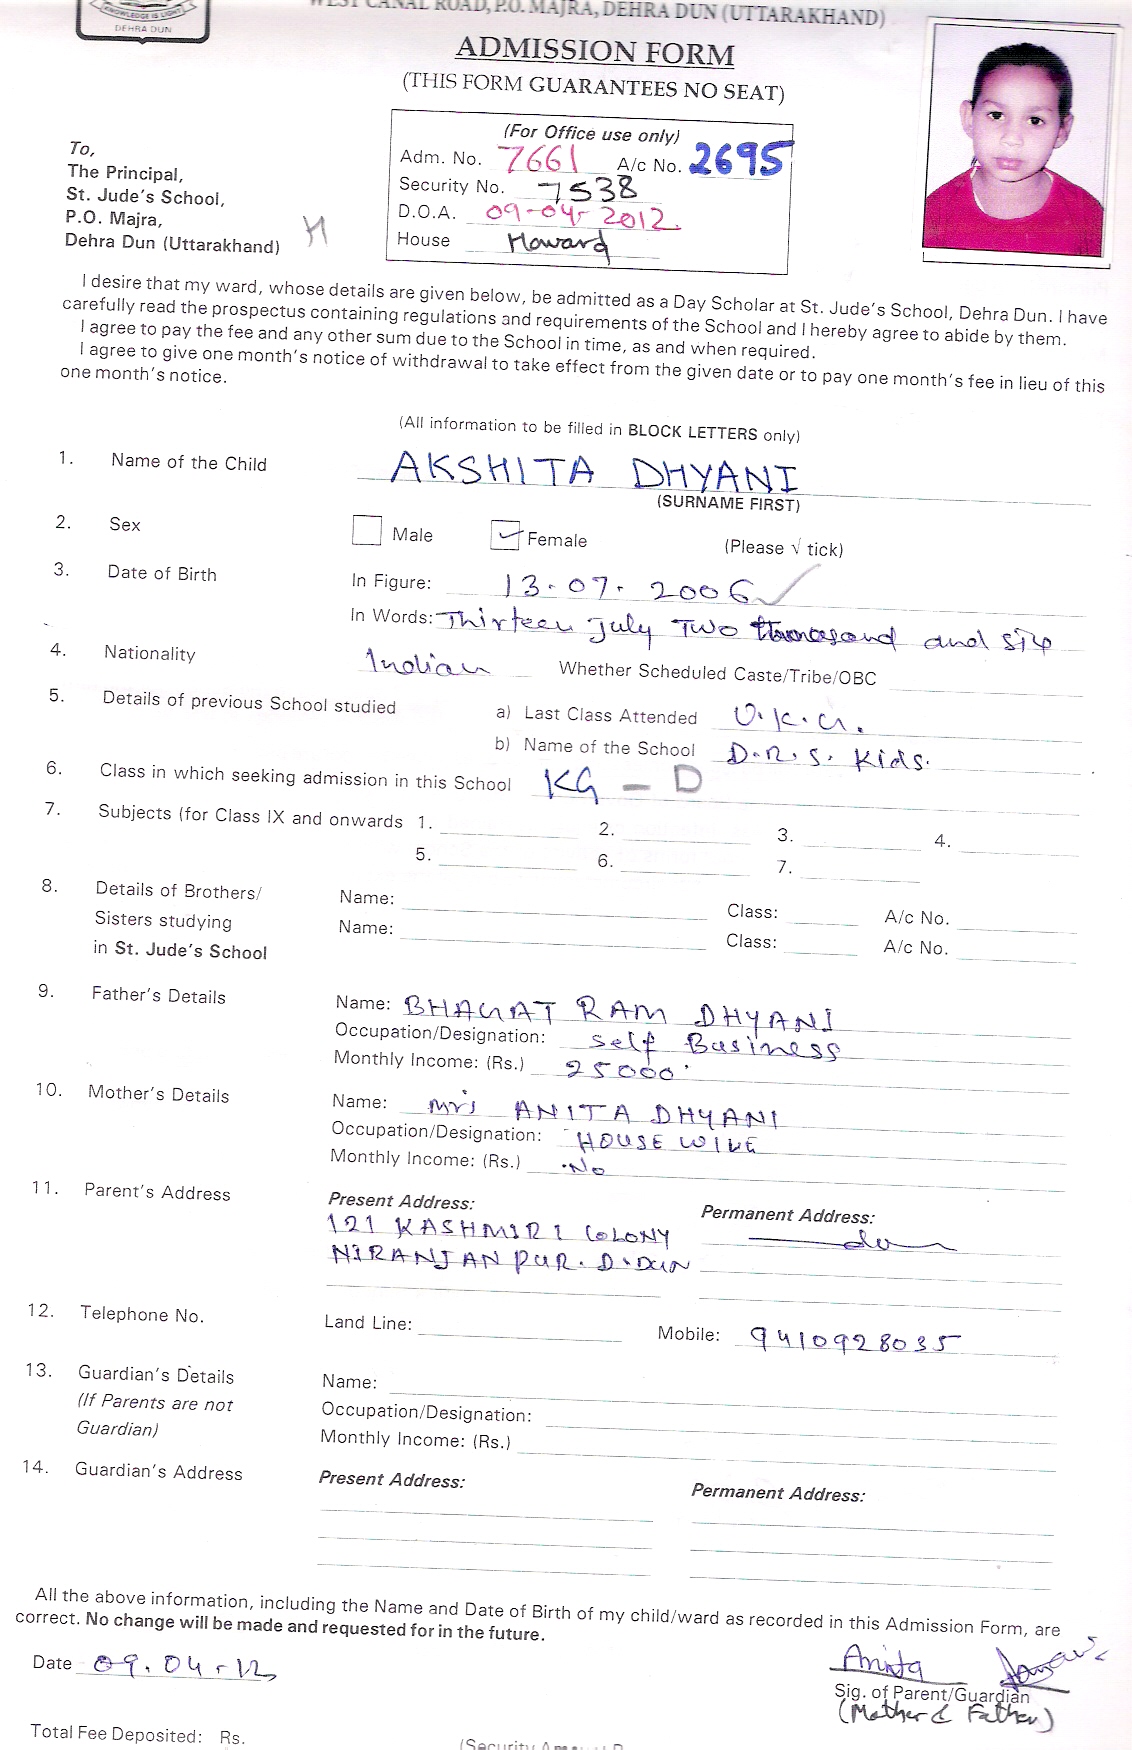 KNOWLEDGE IS LIGHT
DEHRA DUN
WEST CANAL ROAD, P.O. MAJRA, DEHRA DUN (UTTARAKHAND)
ADMISSION FORM
(THIS FORM GUARANTEES NO SEAT)
(For Office use only)
Adm. No. 7661 A/c No. 2695
Security No. 7538
D.O.A. 09-04-2012.
House Howard
To,
The Principal,
St. Jude's School,
P.O. Majra,
Dehra Dun (Uttarakhand)
H
I desire that my ward, whose details are given below, be admitted as a Day Scholar at St. Jude's School, Dehra Dun. I have
carefully read the prospectus containing regulations and requirements of the School and I hereby agree to abide by them.
I agree to pay the fee and any other sum due to the School in time, as and when required.
I agree to give one month's notice of withdrawal to take effect from the given date or to pay one month's fee in lieu of this
one month's notice.
(All information to be filled in BLOCK LETTERS only)
1. Name of the Child AKSHITA DHYANI
(SURNAME FIRST)
2. Sex Male Female (Please √ tick)
3. Date of Birth In Figure: 13.07.2006
In Words: Thirteen July Two thousand and six
4. Nationality Indian Whether Scheduled Caste/Tribe/OBC
5. Details of previous School studied a) Last Class Attended U.K.G.
b) Name of the School D.R.S. Kids.
6. Class in which seeking admission in this School KG - D
7. Subjects (for Class IX and onwards 1. 2. 3. 4.
5. 6. 7.
8. Details of Brothers/ Name: Class: A/c No.
Sisters studying Name: Class: A/c No.
in St. Jude's School
9. Father's Details Name: BHAGAT RAM DHYANI
Occupation/Designation: Self Business
Monthly Income: (Rs.) 25000
10. Mother's Details Name: Mrs ANITA DHYANI
Occupation/Designation: HOUSE WIFE
Monthly Income: (Rs.) No
11. Parent's Address Present Address: Permanent Address:
121 KASHMIRI COLONY do
NIRANJANPUR. D.DUN
12. Telephone No. Land Line: Mobile: 9410928035
13. Guardian's Details Name:
(If Parents are not Occupation/Designation:
Guardian) Monthly Income: (Rs.)
14. Guardian's Address Present Address: Permanent Address:
All the above information, including the Name and Date of Birth of my child/ward as recorded in this Admission Form, are
correct. No change will be made and requested for in the future.
Date 09.04-12
Anita
Sig. of Parent/Guardian
(Mother & Father)
Total Fee Deposited: Rs.